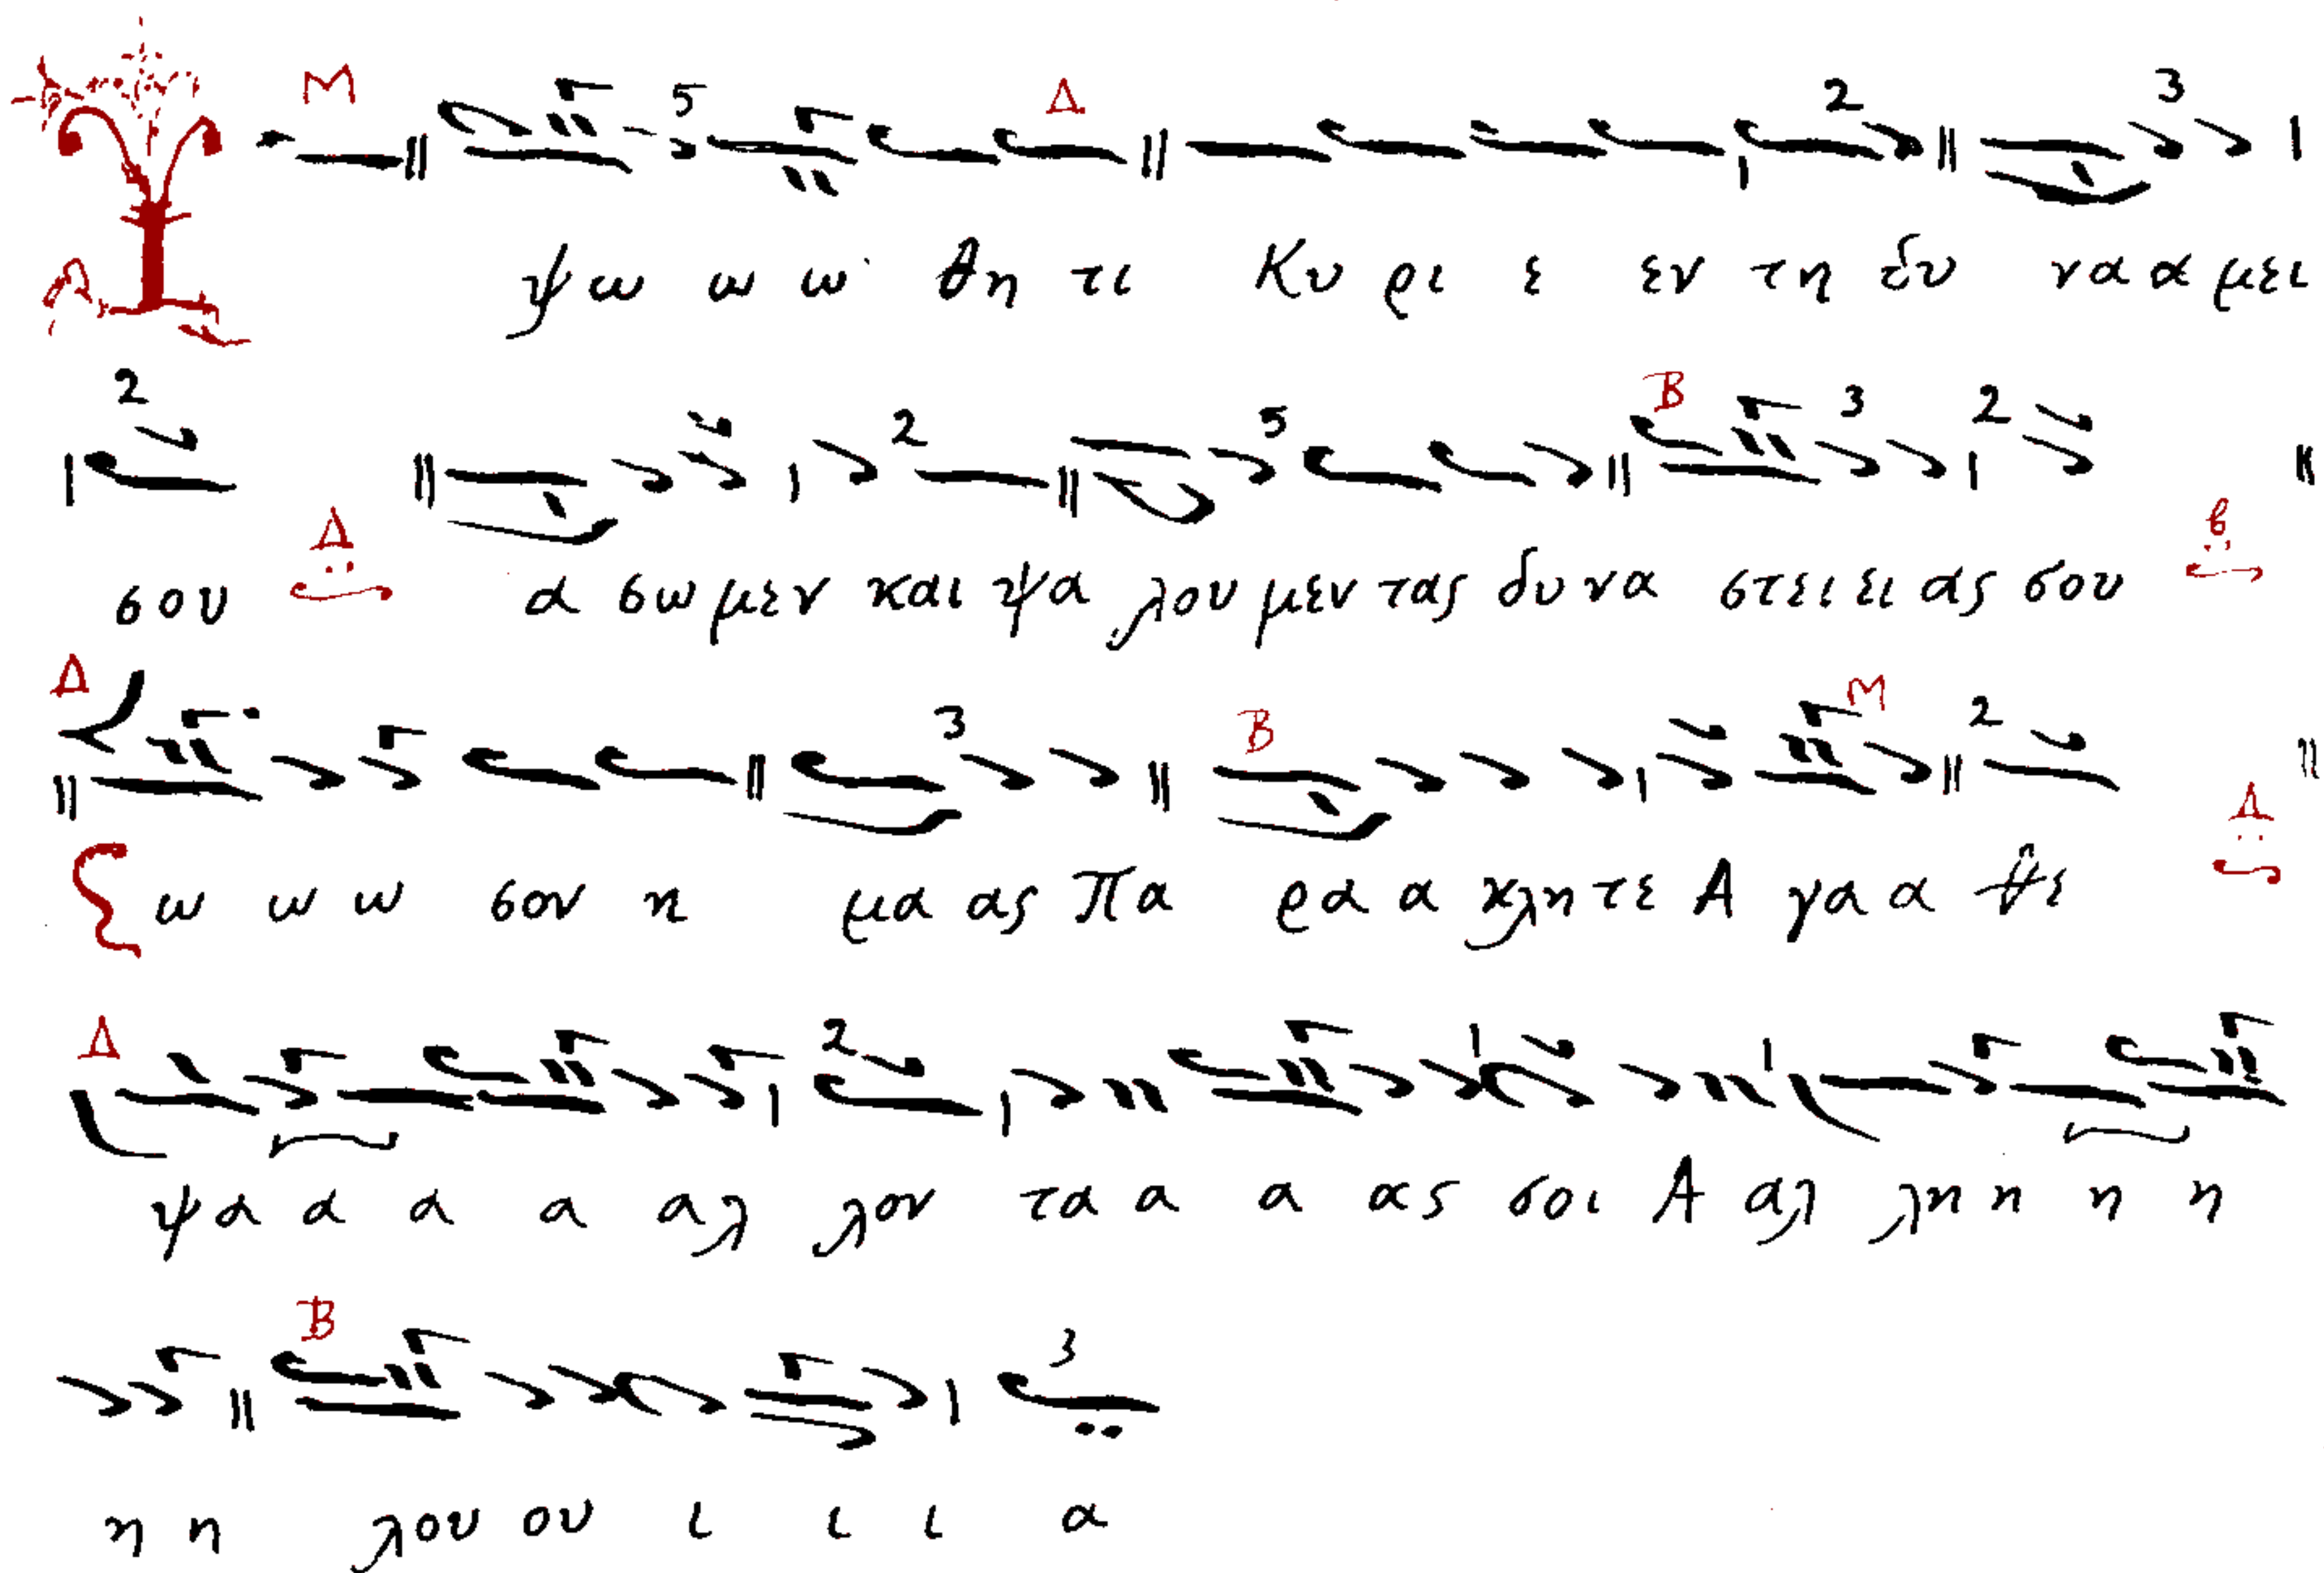 Υψω ω ω θη τι Κυ ρι ε εν τη δυ να α μει
σου α σω μεν και ψα λου μεν τας δυ να στει ει ας σου
Ζω ω ω σον η μα ας Πα ρα α κλη τε Α γα α θε
ψα α α α αλ λον τα α α ας σοι Α αλ λη η η η
η η λου ου ι ι ι α